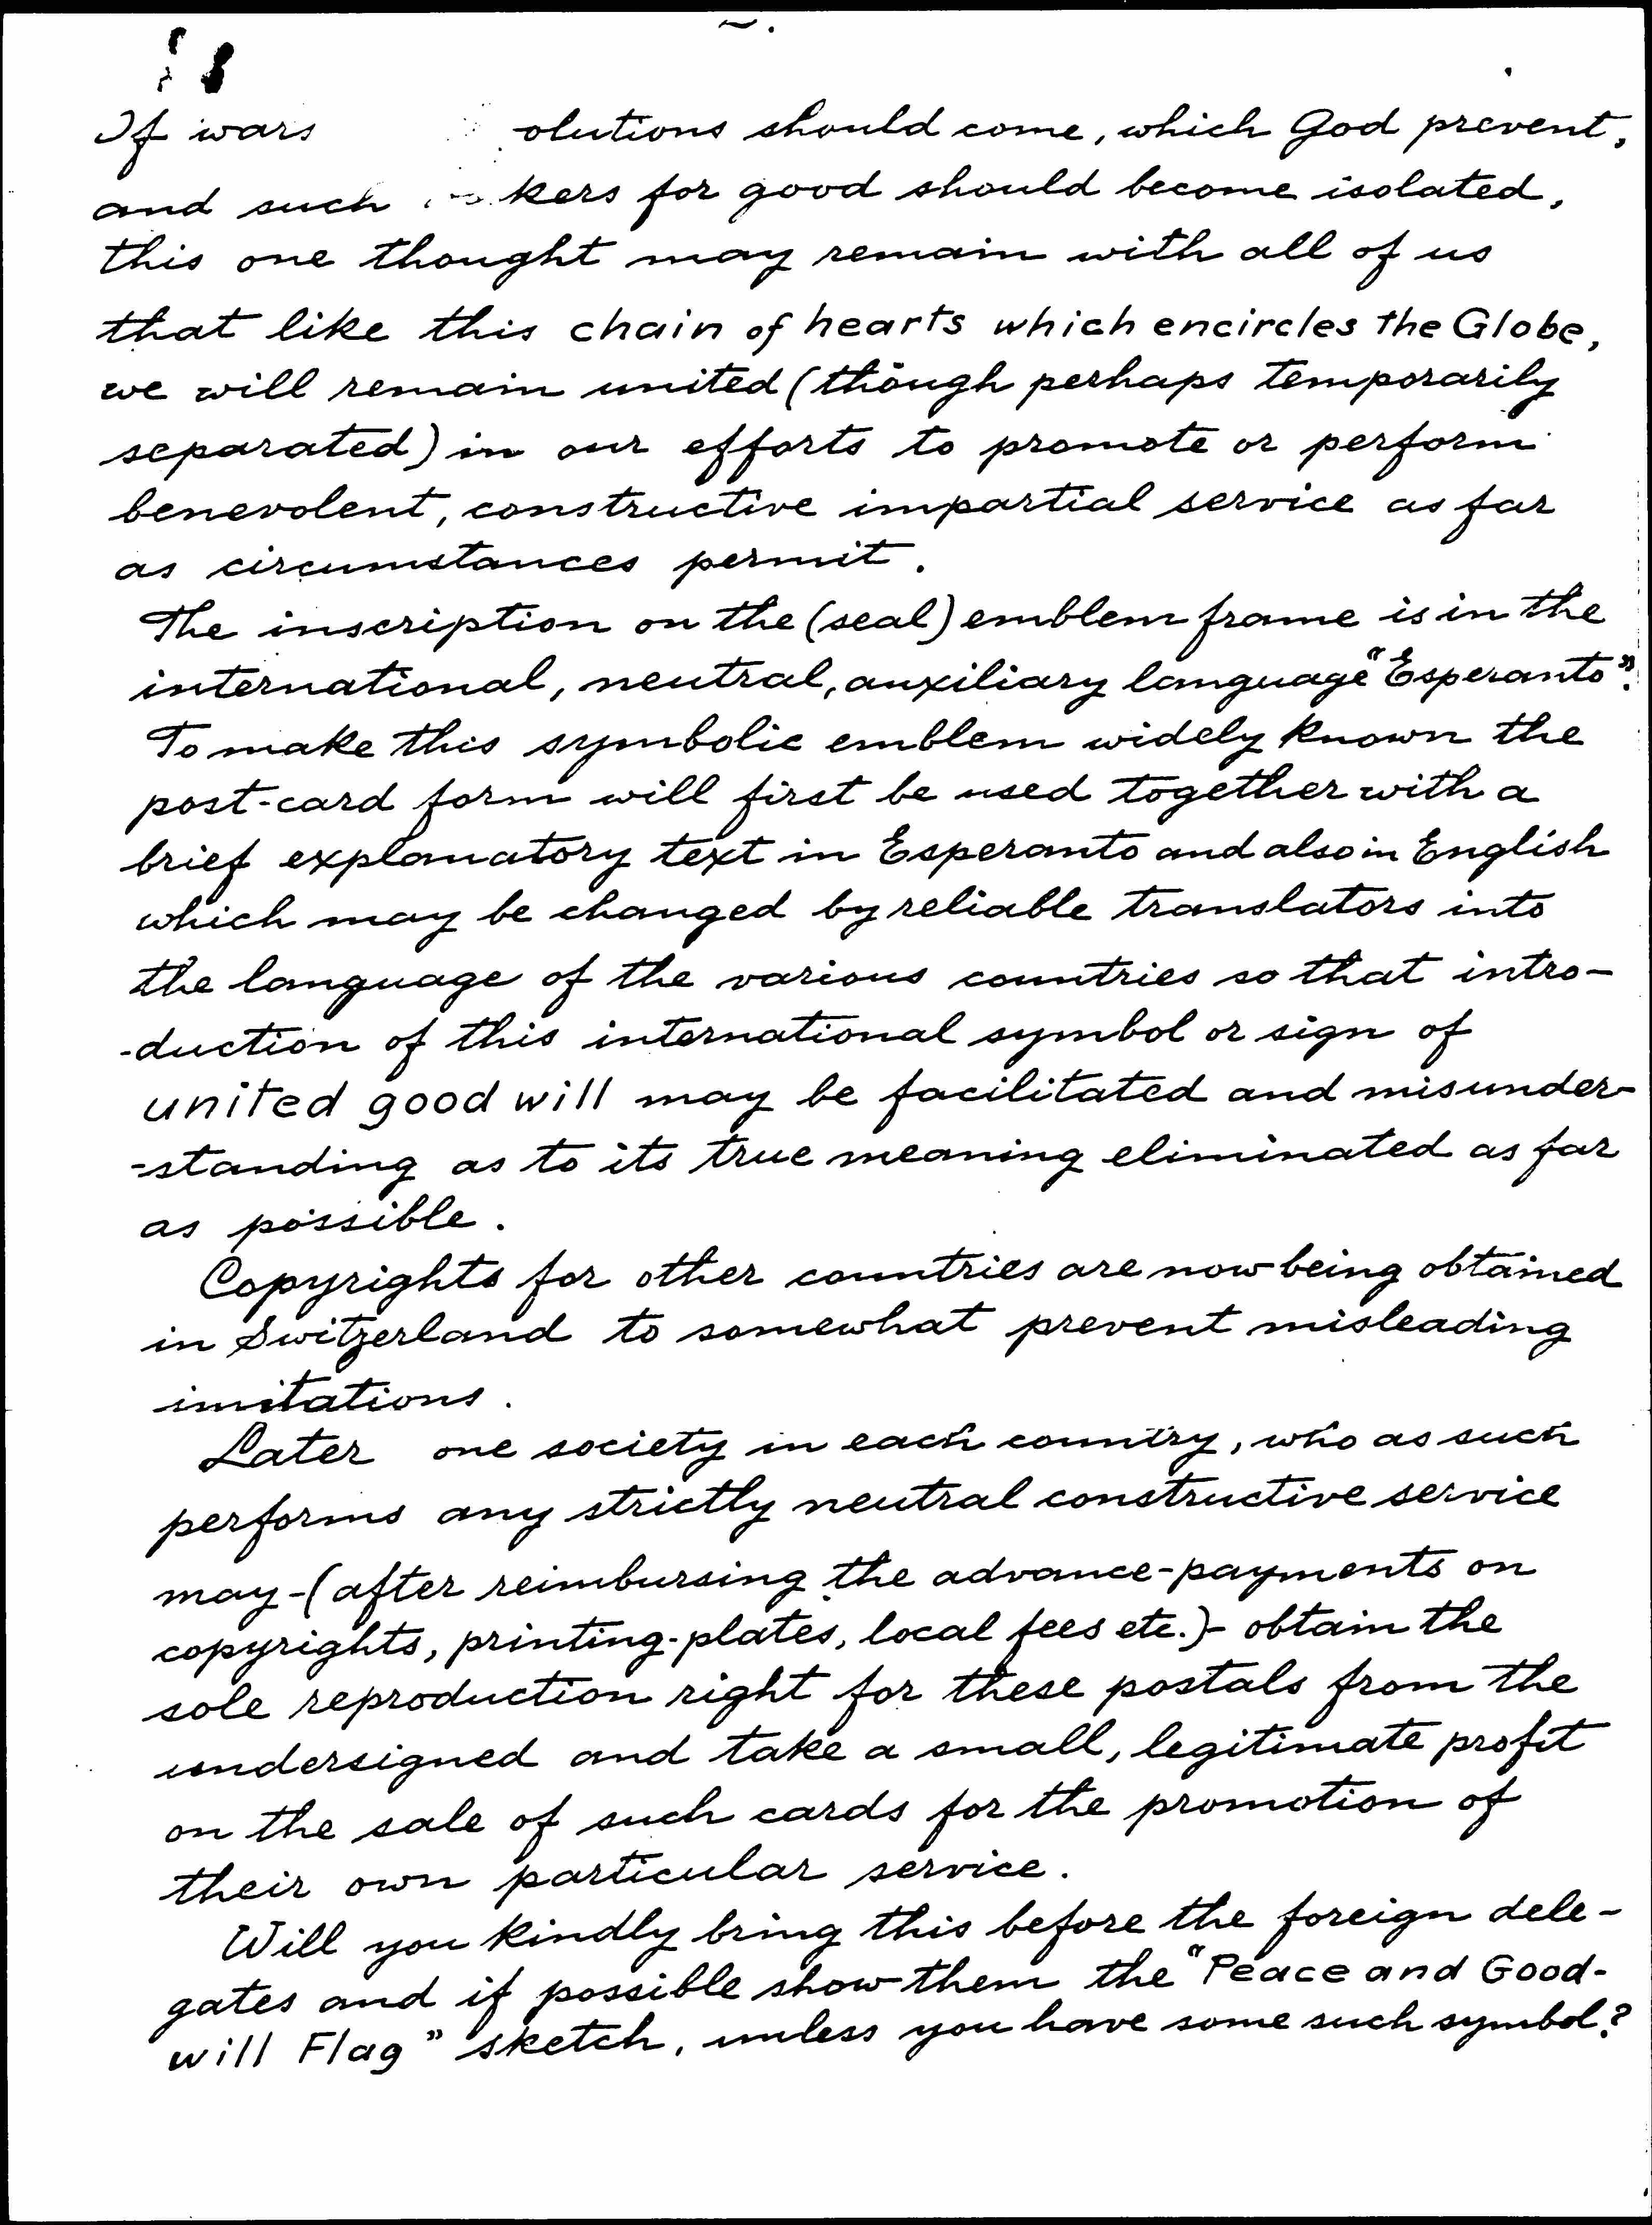 If wars olutions should come, which God prevent,
and such kers for good should become isolated,
this one thought may remain with all of us
that like this chain of hearts which encircles the Globe,
we will remain united (though perhaps temporarily
separated) in our efforts to promote or perform
benevolent, constructive impartial service as far
as circumstances permit.
The inscription on the (seal) emblem frame is in the
international, neutral, auxiliary language "Esperanto".
To make this symbolic emblem widely known the
post-card form will first be used together with a
brief explanatory text in Esperanto and also in English
which may be changed by reliable translators into
the language of the various countries so that intro-
-duction of this international symbol or sign of
united good will may be facilitated and misunder-
-standing as to its true meaning eliminated as far
as possible.
Copyrights for other countries are now being obtained
in Switzerland to somewhat prevent misleading
imitations.
Later one society in each country, who as such
performs any strictly neutral constructive service
may-(after reimbursing the advance-payments on
copyrights, printing-plates, local fees etc.)- obtain the
sole reproduction right for these postals from the
undersigned and take a small, legitimate profit
on the sale of such cards for the promotion of
their own particular service.
Will you kindly bring this before the foreign dele-
gates and if possible show them the "Peace and Good-
will Flag" sketch, unless you have some such symbol?